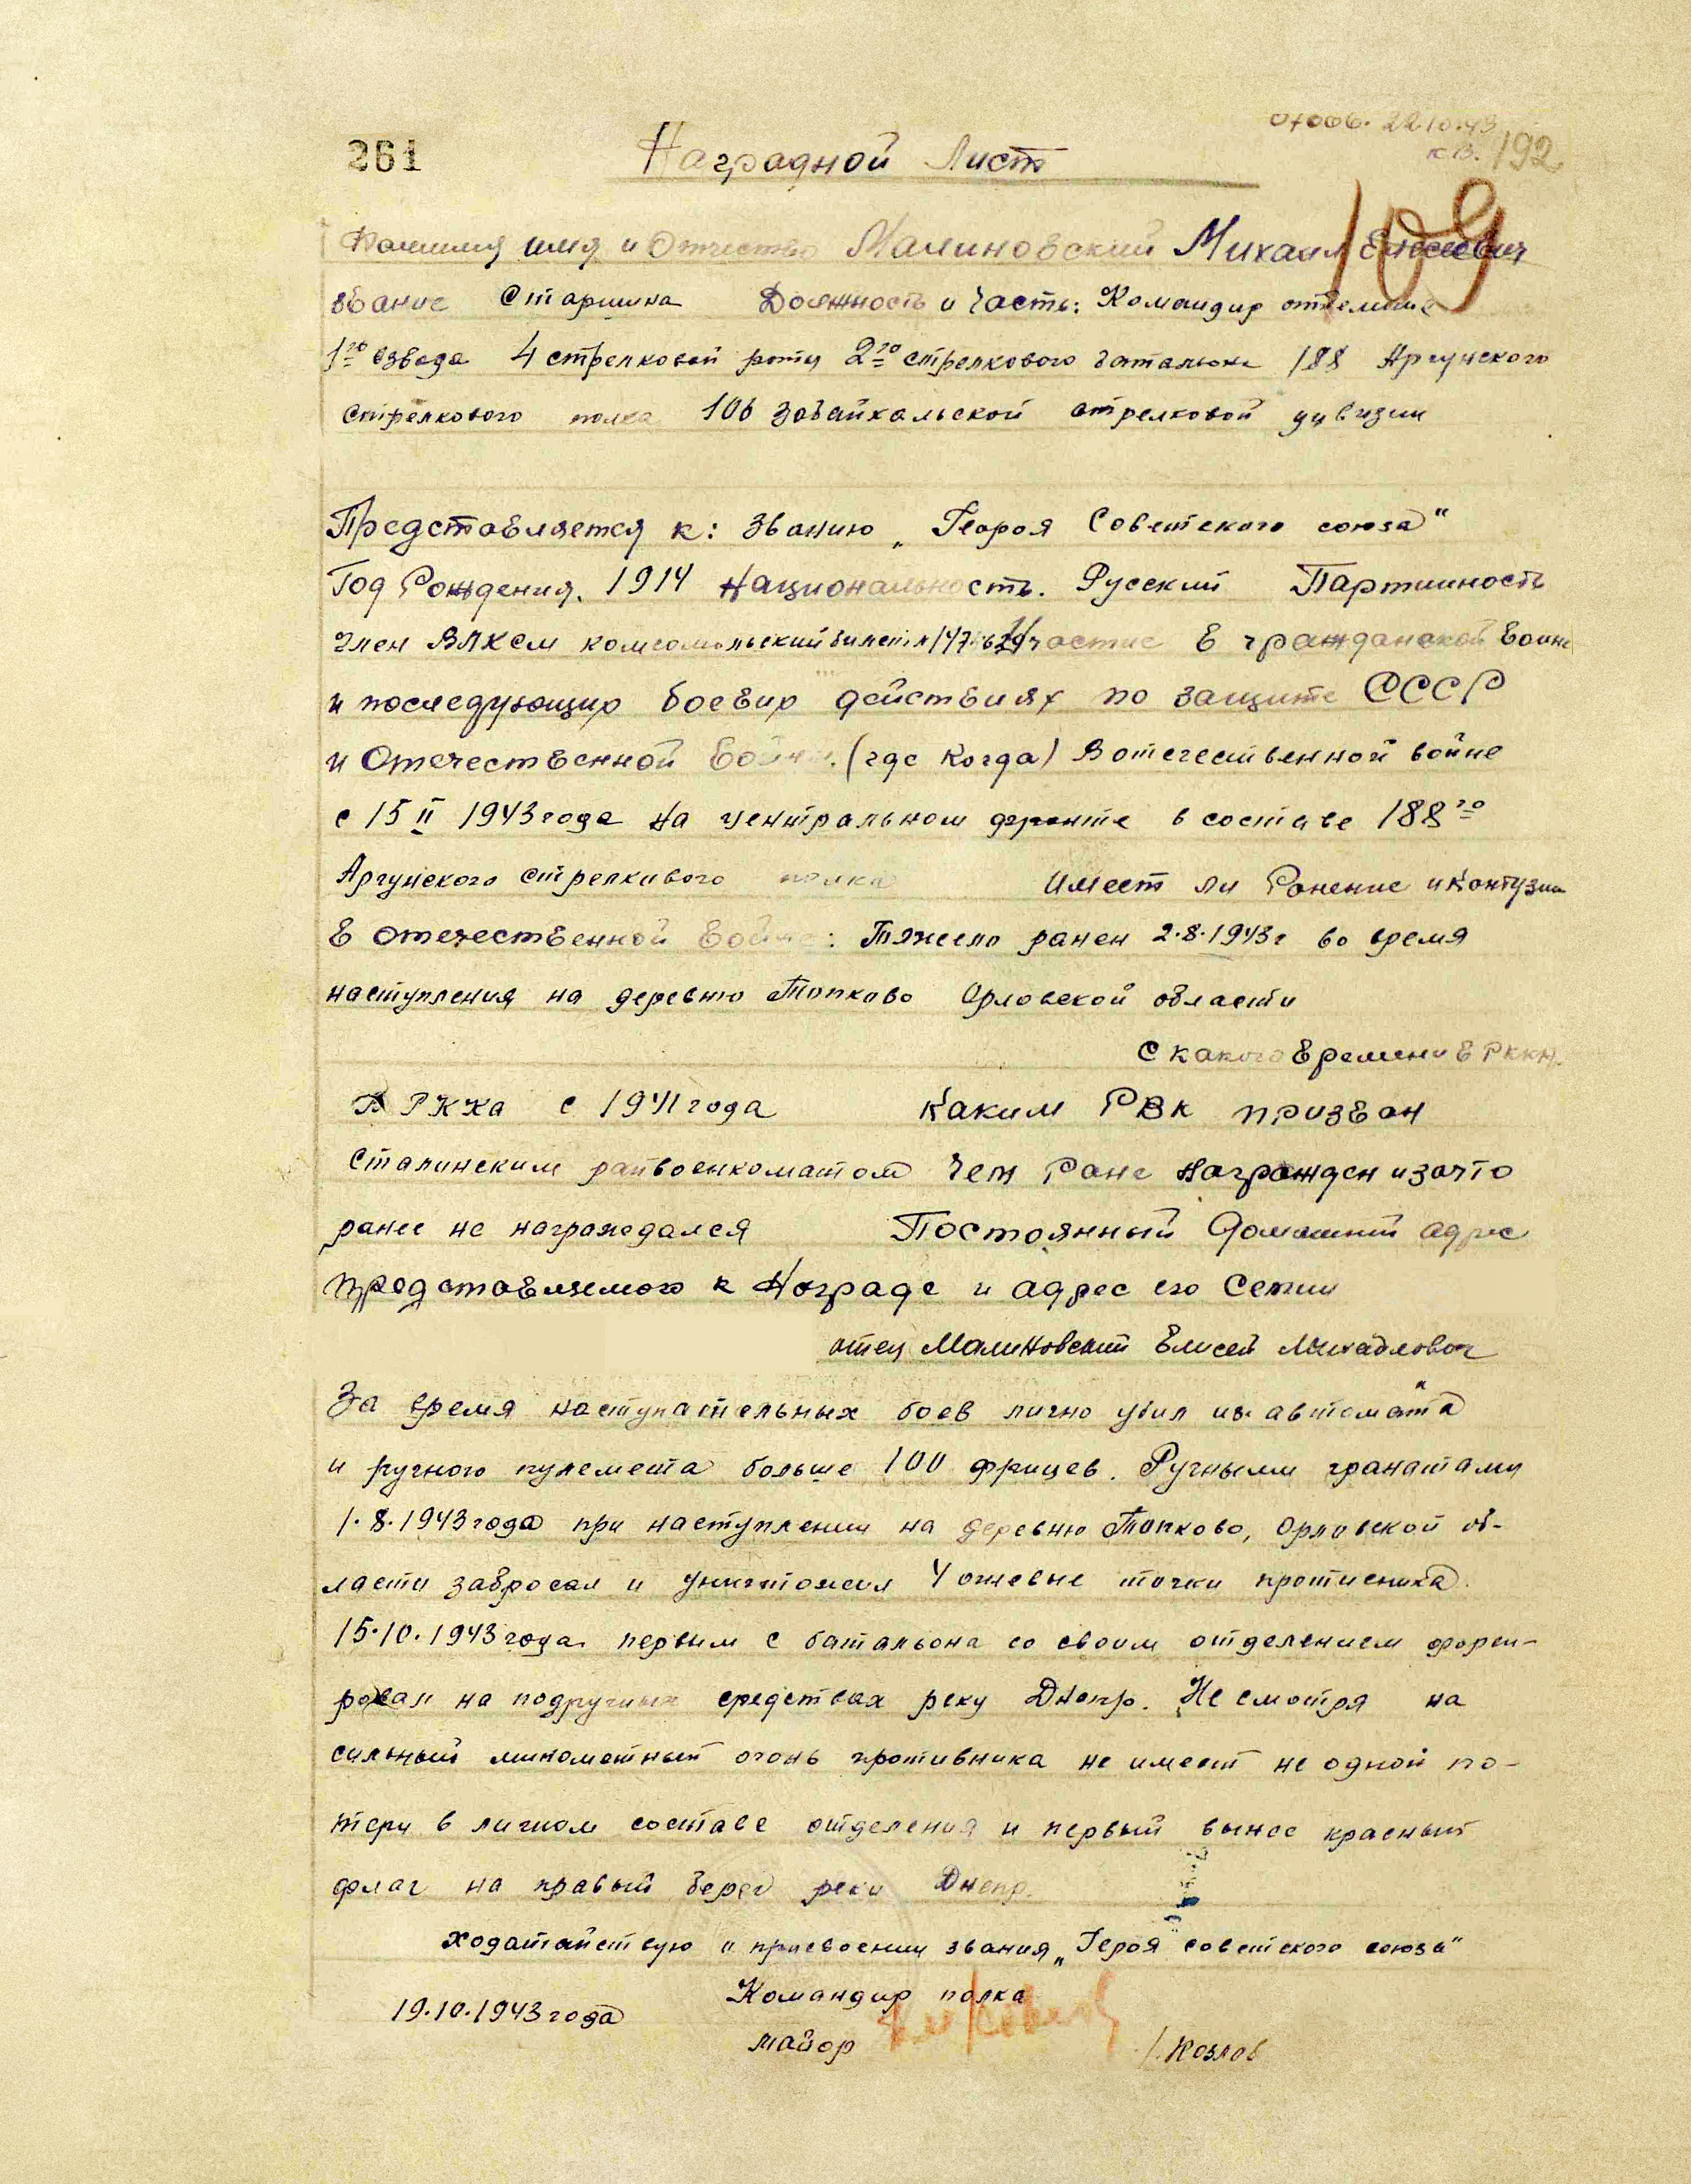 261
Наградной Лист
22.10.43
кв. 192
109
Фамилия имя и Отчество Малиновский Михаил Елисеевич
звание Старшина Должность и Часть: Командир отделения
1го взвода 4 стрелковой роты 2го стрелкового баталиона 188 Аргунского
стрелкового полка 106 Забайкальской стрелковой дивизии
Представляется к: званию „Героя Советского союза"
Год Рождения. 1914 Национальность. Русский Партийность
Член ВЛКСМ комсомольский билет Участие в гражданской войне
и последующир боевир действиях по защите СССР
и Отечественной войны. (где когда) В отечественной войне
с 15 II 1943 года на центральном фронте в составе 188го
Аргунского стрелкового полка Имеет ли Ранение и Контузии
в отечественной войне: Тяжело ранен 2.8.1943г во время
наступления на деревню Топково Орловской области
С какого времени в РККА.
В РККА с 1941 года Каким РВК призван
Сталинским райвоенкоматом Чем Ране Награжден и зачто
ранее не награждался Постоянный Домашний адрес
представляемого к Награде и адрес его Семии
отец Малиновский Елисей Михайлович
За время наступательных боев лично убил из автомата
и ручного пулемета больше 100 фрицев. Ручными гранатами
1.8.1943 года при наступлении на деревню Топково, Орловской об-
ласти забросал и уничтожил 4 огневые точки противника.
15.10.1943 года первым с батальона со своим отделением форси-
ровал на подручных средствах реку Днепр. Не смотря на
сильный минометный огонь противника не имеет не одной по-
тери в личном составе отделения и первый вынес красный
флаг на правый берег реки Днепр.
Ходатайствую о присвоении звания „Героя советского союза"
19.10.1943 года Командир полка
майор /. Козлов